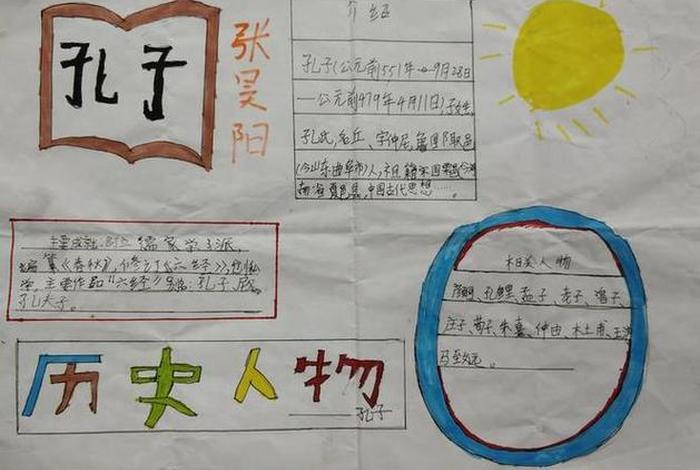 孔子
张昊阳
介绍
孔子(公元前551年 9月28日
—公元前479年4月11日),子姓,
孔氏,名丘、字仲尼,鲁国陬邑
(今山东曲阜市)人,祖籍宋国栗邑
南省夏邑县,中国古代思想……
主要成就:创立儒家学派,
编纂《春秋》,修订《六经》,
主要作品"六经" 别名:孔子、尼
孔夫子。
相关人物
颜回、孔鲤、孟子、老子、
庄子、荀子、朱熹、仲由、
历史人物
孔子